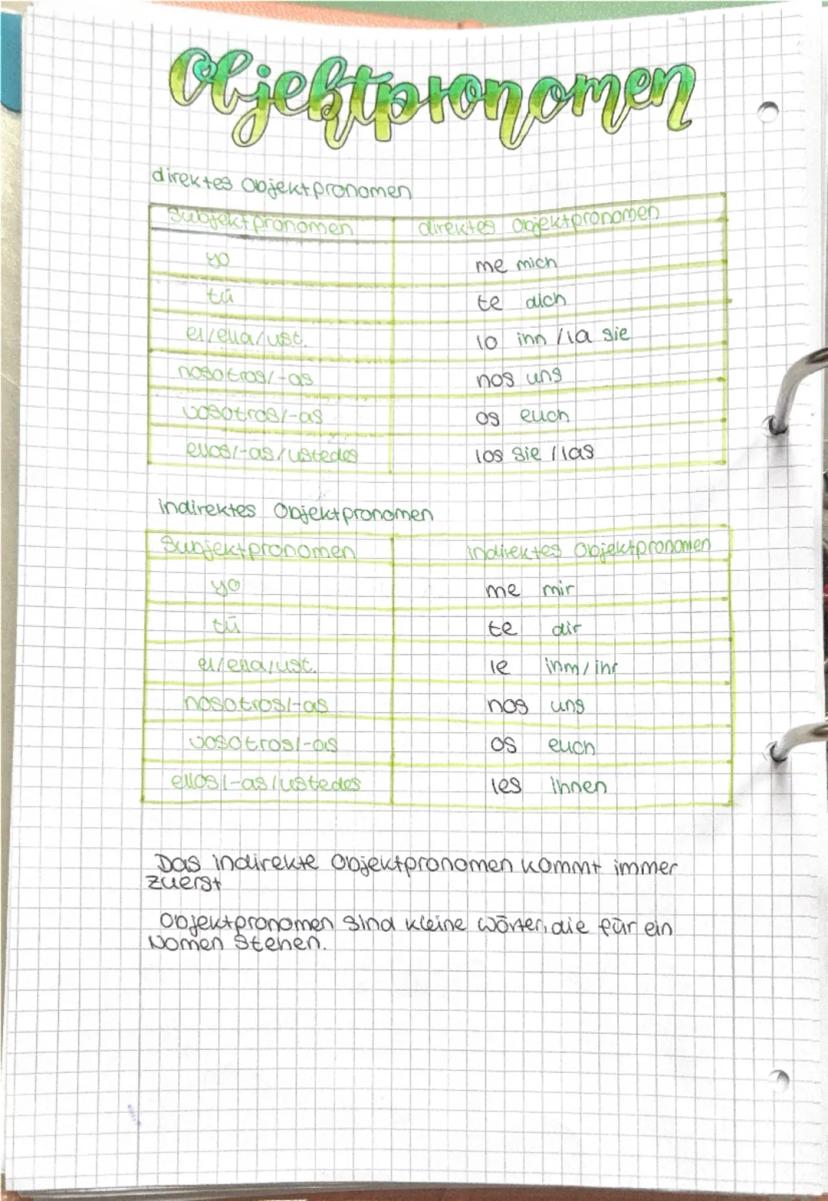 Objektpronomen
direktes Objektpronomen
Subjektpronomen direktes Objektpronomen
yo me mich
tú te dich
el/ella/ust. lo ihn /la sie
nosotros/-as nos uns
vosotros/-as os euch
ellos/-as/ustedes los sie /las
indirektes Objektpronomen
Subjektpronomen indirektes Objektpronomen
yo me mir
tú te dir
el/ella/ust. le ihm/ihr
nosotros/-as nos uns
vosotros/-as os euch
ellos/-as/ustedes les ihnen
Das indirekte Objektpronomen kommt immer
zuerst
Objektpronomen sind kleine Wörter, die für ein
Nomen stehen.